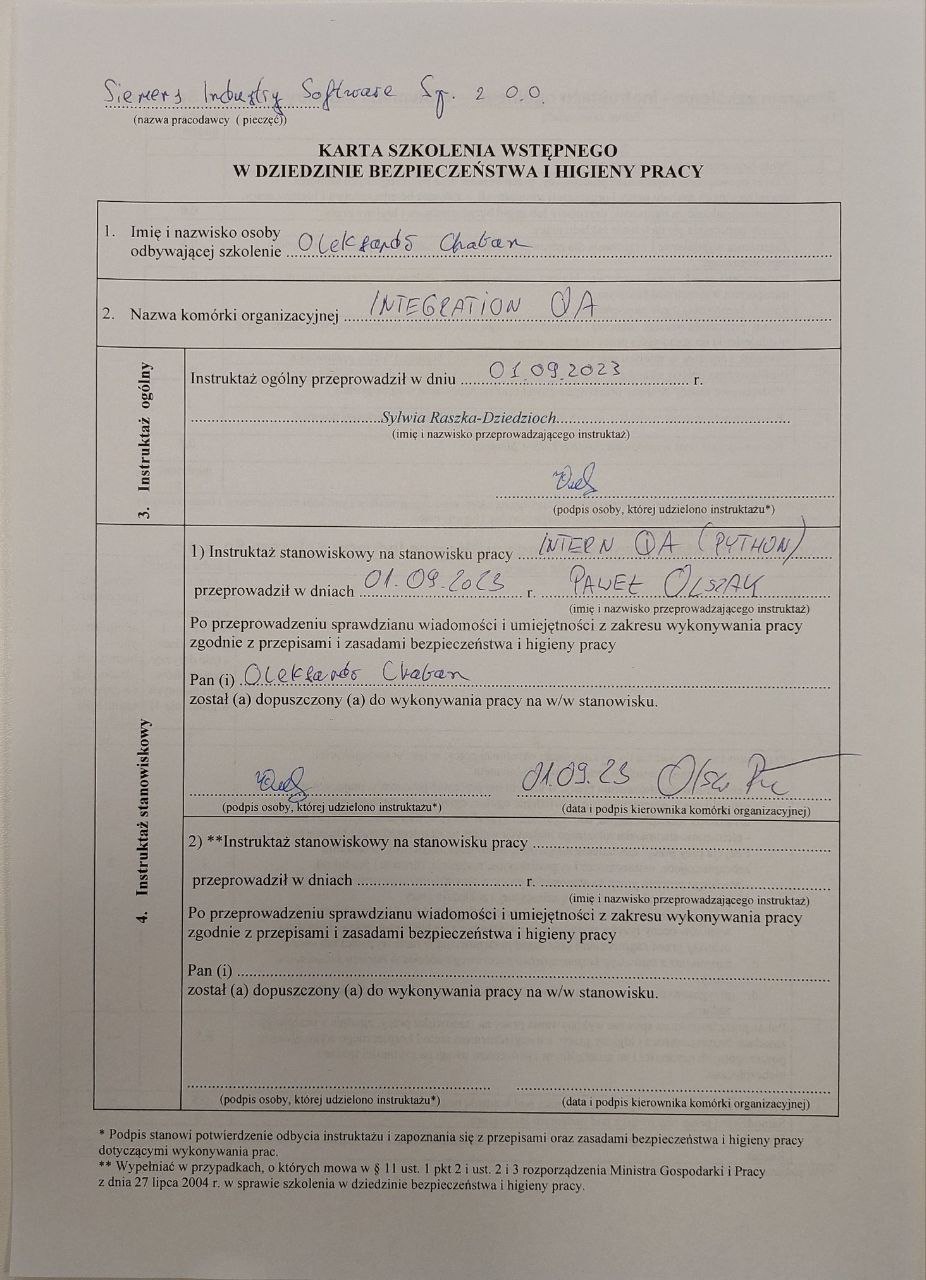 Siemens Industry Software Sp. z o.o.
(nazwa pracodawcy ( pieczęć))
KARTA SZKOLENIA WSTĘPNEGO
W DZIEDZINIE BEZPIECZEŃSTWA I HIGIENY PRACY
1. Imię i nazwisko osoby
odbywającej szkolenie Oleksandr Chaban
2. Nazwa komórki organizacyjnej INTEGRATION QA
3. Instruktaż ogólny
Instruktaż ogólny przeprowadził w dniu 01.09.2023 r.
Sylwia Raszka-Dziedzioch
(imię i nazwisko przeprowadzającego instruktaż)
(podpis osoby, której udzielono instruktażu*)
4. Instruktaż stanowiskowy
1) Instruktaż stanowiskowy na stanowisku pracy INTERN QA (PYTHON)
przeprowadził w dniach 01.09.2023 r. PAWEŁ OLSZAK
(imię i nazwisko przeprowadzającego instruktaż)
Po przeprowadzeniu sprawdzianu wiadomości i umiejętności z zakresu wykonywania pracy
zgodnie z przepisami i zasadami bezpieczeństwa i higieny pracy
Pan (i) Oleksandr Chaban
został (a) dopuszczony (a) do wykonywania pracy na w/w stanowisku.
01.09.23
(podpis osoby, której udzielono instruktażu*) (data i podpis kierownika komórki organizacyjnej)
2) **Instruktaż stanowiskowy na stanowisku pracy
przeprowadził w dniach r.
(imię i nazwisko przeprowadzającego instruktaż)
Po przeprowadzeniu sprawdzianu wiadomości i umiejętności z zakresu wykonywania pracy
zgodnie z przepisami i zasadami bezpieczeństwa i higieny pracy
Pan (i)
został (a) dopuszczony (a) do wykonywania pracy na w/w stanowisku.
(podpis osoby, której udzielono instruktażu*) (data i podpis kierownika komórki organizacyjnej)
* Podpis stanowi potwierdzenie odbycia instruktażu i zapoznania się z przepisami oraz zasadami bezpieczeństwa i higieny pracy
dotyczącymi wykonywania prac.
** Wypełniać w przypadkach, o których mowa w § 11 ust. 1 pkt 2 i ust. 2 i 3 rozporządzenia Ministra Gospodarki i Pracy
z dnia 27 lipca 2004 r. w sprawie szkolenia w dziedzinie bezpieczeństwa i higieny pracy.